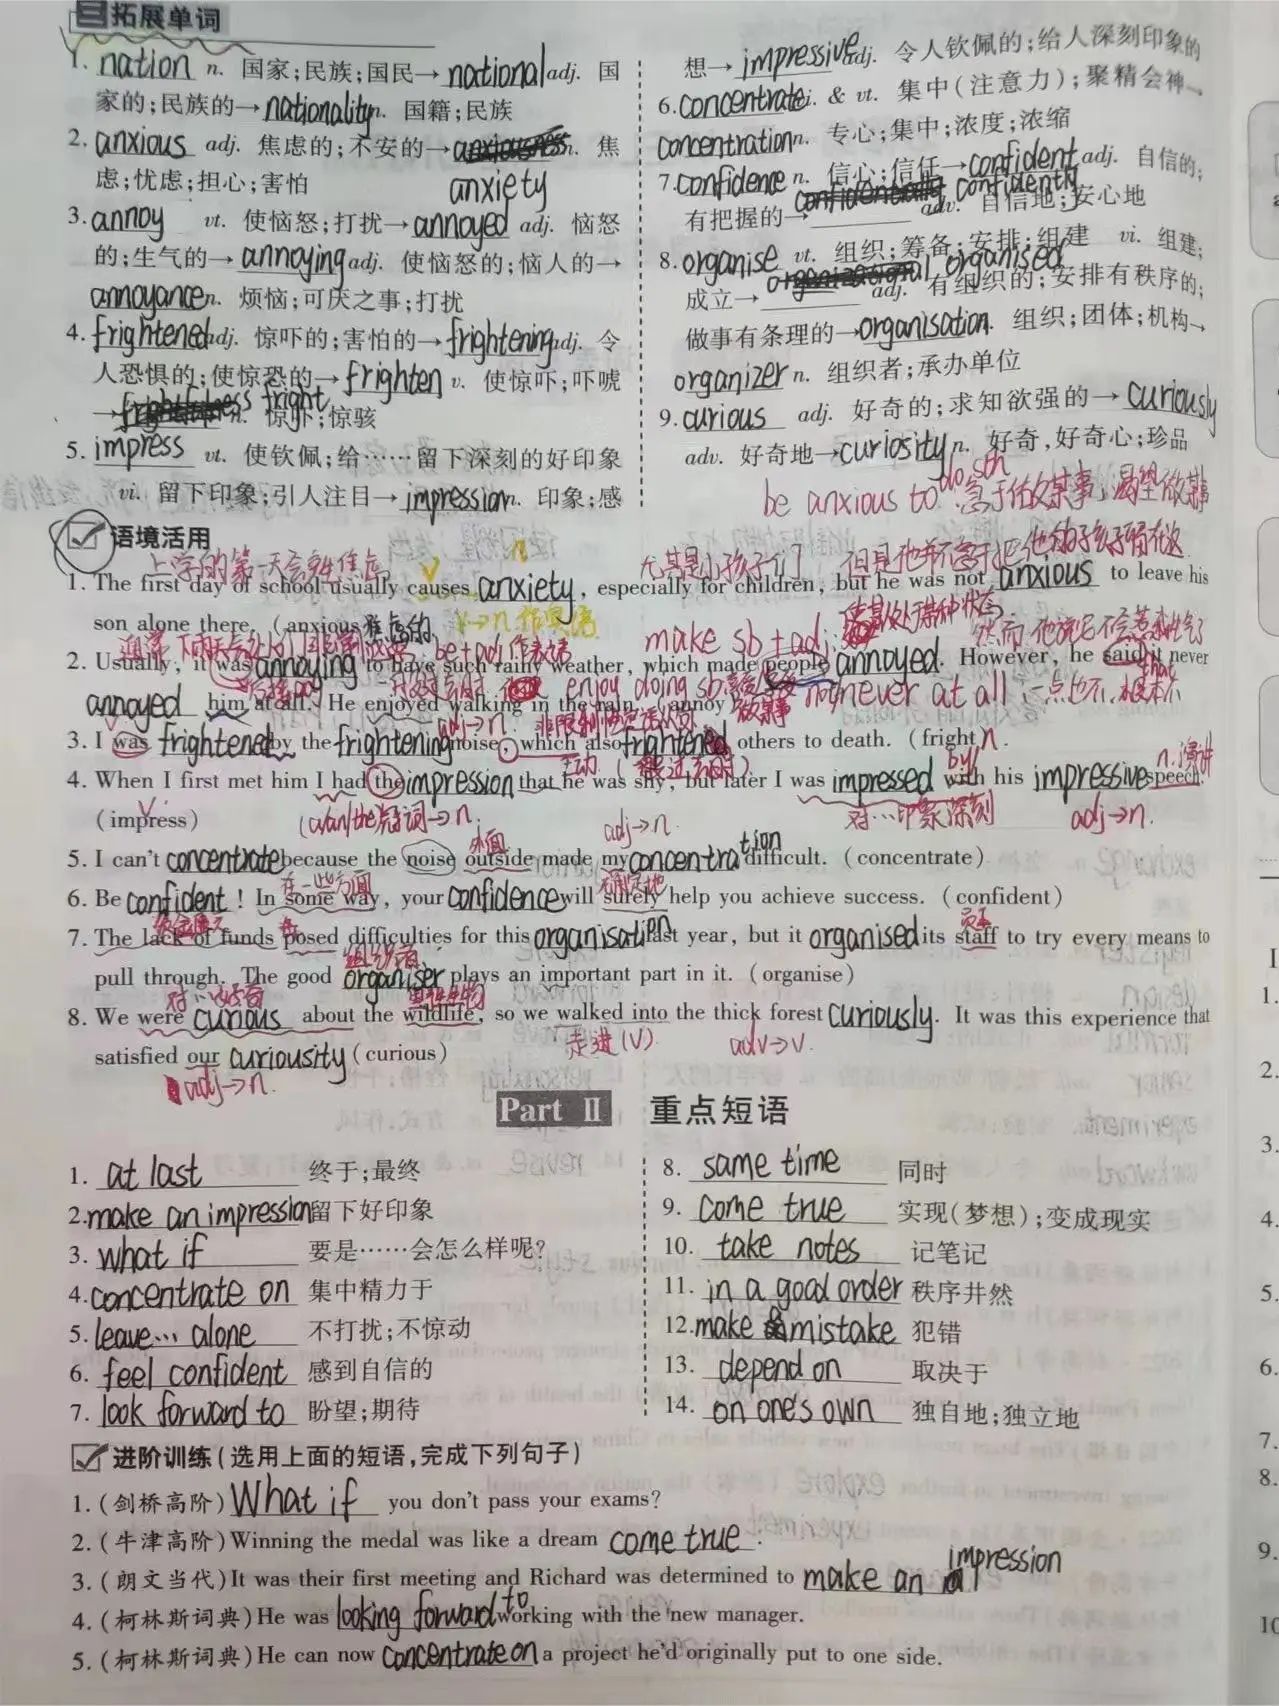 三 拓展单词
1. nation n. 国家;民族;国民→ national adj. 国
家的;民族的→ nationality n. 国籍;民族
2. anxious adj. 焦虑的;不安的→ n. 焦
虑;忧虑;担心;害怕 anxiety
3. annoy vt. 使恼怒;打扰→ annoyed adj. 恼怒
的;生气的→ annoying adj. 使恼怒的;恼人的→
annoyance n. 烦恼;可厌之事;打扰
4. frightened adj. 惊吓的;害怕的→ frightening adj. 令
人恐惧的;使惊恐的→ frighten v. 使惊吓;吓唬
→ fright n. 惊吓;惊骇
5. impress vt. 使钦佩;给……留下深刻的好印象
vi. 留下印象;引人注目→ impression n. 印象;感
想→ impressive adj. 令人钦佩的;给人深刻印象的
6. concentrate vi. & vt. 集中(注意力);聚精会神→
concentration n. 专心;集中;浓度;浓缩
7. confidence n. 信心;信任→ confident adj. 自信的;
有把握的→ confidently adv. 自信地;安心地
8. organise vt. 组织;筹备;安排;组建 vi. 组建;
成立→ organised adj. 有组织的;安排有秩序的;
做事有条理的→ organisation n. 组织;团体;机构→
organizer n. 组织者;承办单位
9. curious adj. 好奇的;求知欲强的→ curiously
adv. 好奇地→ curiosity n. 好奇,好奇心;珍品
be anxious to do sth 急于做某事,渴望做某事
语境活用
上学的第一天会产生焦虑 v n 尤其是小孩子们 但是他并不急于把他的孩子留在这
1. The first day of school usually causes anxiety, especially for children, but he was not anxious to leave his
son alone there. (anxious 焦虑的 v→n 作宾语
be+adj 作表语 make sb+adj: 使某人处于某种状态
2. Usually, it was annoying to have such rainy weather, which made people annoyed. However, he said it never
enjoy doing sb never at all 一点也不,根本不
annoyed him at all. He enjoyed walking in the rain. (annoy
adj→n
3. I was frightened by the frightening noise, which also frightened others to death. (fright n.
by n.演讲
4. When I first met him I had the impression that he was shy, but later I was impressed with his impressive speech.
(impress) (a/an/the冠词→n. adj→n. 对…印象深刻 adj→n.
外面
5. I can't concentrate because the noise outside made my concentration difficult. (concentrate)
在一些方面 确定地
6. Be confident! In some way, your confidence will surely help you achieve success. (confident)
员工
7. The lack of funds posed difficulties for this organisation last year, but it organised its staff to try every means to
组织者
pull through. The good organiser plays an important part in it. (organise)
对…好奇
8. We were curious about the wildlife, so we walked into the thick forest curiously. It was this experience that
走进(v) adv→v.
satisfied our curiousity (curious)
adj→n.
Part Ⅱ 重点短语
1. at last 终于;最终
2. make an impression 留下好印象
3. what if 要是……会怎么样呢?
4. concentrate on 集中精力于
5. leave… alone 不打扰;不惊动
6. feel confident 感到自信的
7. look forward to 盼望;期待
8. same time 同时
9. come true 实现(梦想);变成现实
10. take notes 记笔记
11. in a good order 秩序井然
12. make a mistake 犯错
13. depend on 取决于
14. on one's own 独自地;独立地
进阶训练(选用上面的短语,完成下列句子)
1. (剑桥高阶) What if you don't pass your exams?
2. (牛津高阶) Winning the medal was like a dream come true.
3. (朗文当代) It was their first meeting and Richard was determined to make an impression
4. (柯林斯词典) He was looking forward to working with the new manager.
5. (柯林斯词典) He can now concentrate on a project he'd originally put to one side.